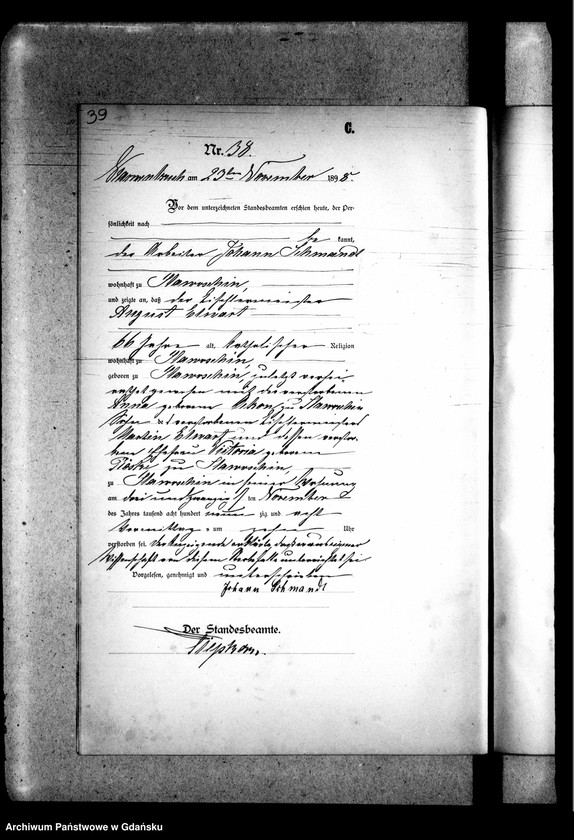 39
C.
Nr. 38.
am 23ten November 1898.
Vor dem unterzeichneten Standesbeamten erschien heute, der Per-
sönlichkeit nach
be kannt,
der Arbeiter Johann Schmandt
wohnhaft zu Slawoschin,
und zeigte an, daß der Tischlermeister
August Elwart
66 Jahre alt, katholischer Religion
wohnhaft zu Slawoschin,
geboren zu Slawoschin, zuletzt verhei-
rathet gewesen mit der verstorbenen
Anna geborene zu Slawoschin
Sohn des verstorbenen Tischlermeisters
Martin Elwart und dessen verstor-
benen Ehefrau Victoria geborene
zu Slawoschin,
zu Slawoschin in seiner Wohnung
am drei und zwanzigsten November
des Jahres tausend acht hundert neunzig und acht
Vormittags um zehn Uhr
verstorben sei. Der Anzeigende erklärte, daß er aus eigener
Wissenschaft von diesem Sterbefalle unterrichtet sei
Vorgelesen, genehmigt und unterschrieben
Johann Schmandt
Der Standesbeamte.
Archiwum Państwowe w Gdańsku